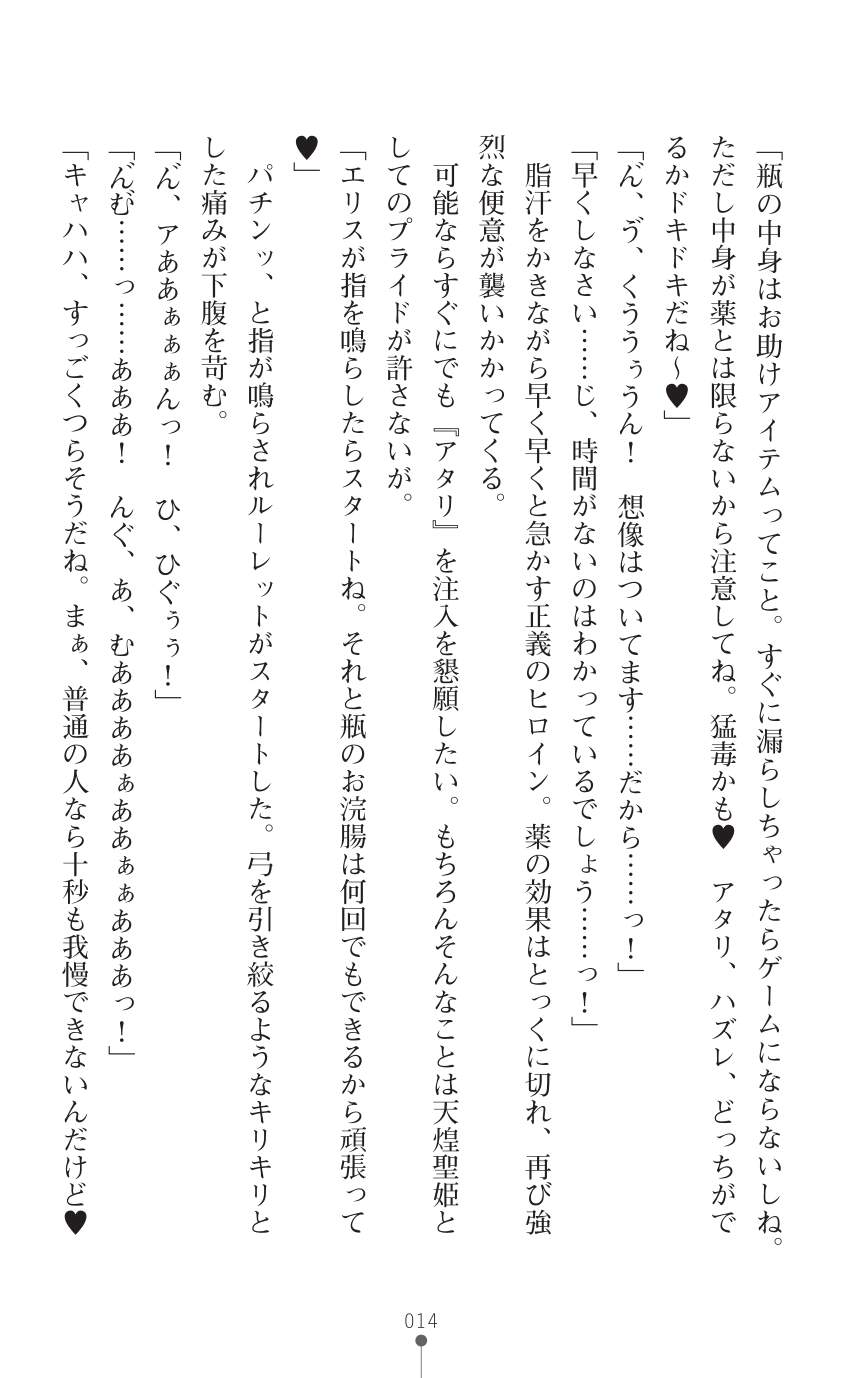 「瓶の中身はお助けアイテムってこと。すぐに漏らしちゃったらゲームにならないしね。
ただし中身が薬とは限らないから注意してね。猛毒かも♥　アタリ、ハズレ、どっちがで
るかドキドキだね～♥」
「ん゛、ゔ、くううぅうん！　想像はついてます……だから……っ！」
「早くしなさい……じ、時間がないのはわかっているでしょう……っ！」
　脂汗をかきながら早く早くと急かす正義のヒロイン。薬の効果はとっくに切れ、再び強
烈な便意が襲いかかってくる。
　可能ならすぐにでも『アタリ』を注入を懇願したい。もちろんそんなことは天煌聖姫と
してのプライドが許さないが。
「エリスが指を鳴らしたらスタートね。それと瓶のお浣腸は何回でもできるから頑張って
♥」
　パチンッ、と指が鳴らされルーレットがスタートした。弓を引き絞るようなキリキリと
した痛みが下腹を苛む。
「ん゛、アああぁぁぁんっ！　ひ、ひぐぅぅ！」
「ん゛む゛……っ……あああ！　んぐ、あ、むああああぁああぁぁあああっ！」
「キャハハ、すっごくつらそうだね。まぁ、普通の人なら十秒も我慢できないんだけど♥
014